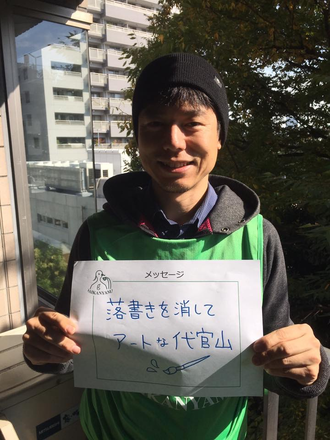 メッセージ
落書きを消して
アートな代官山